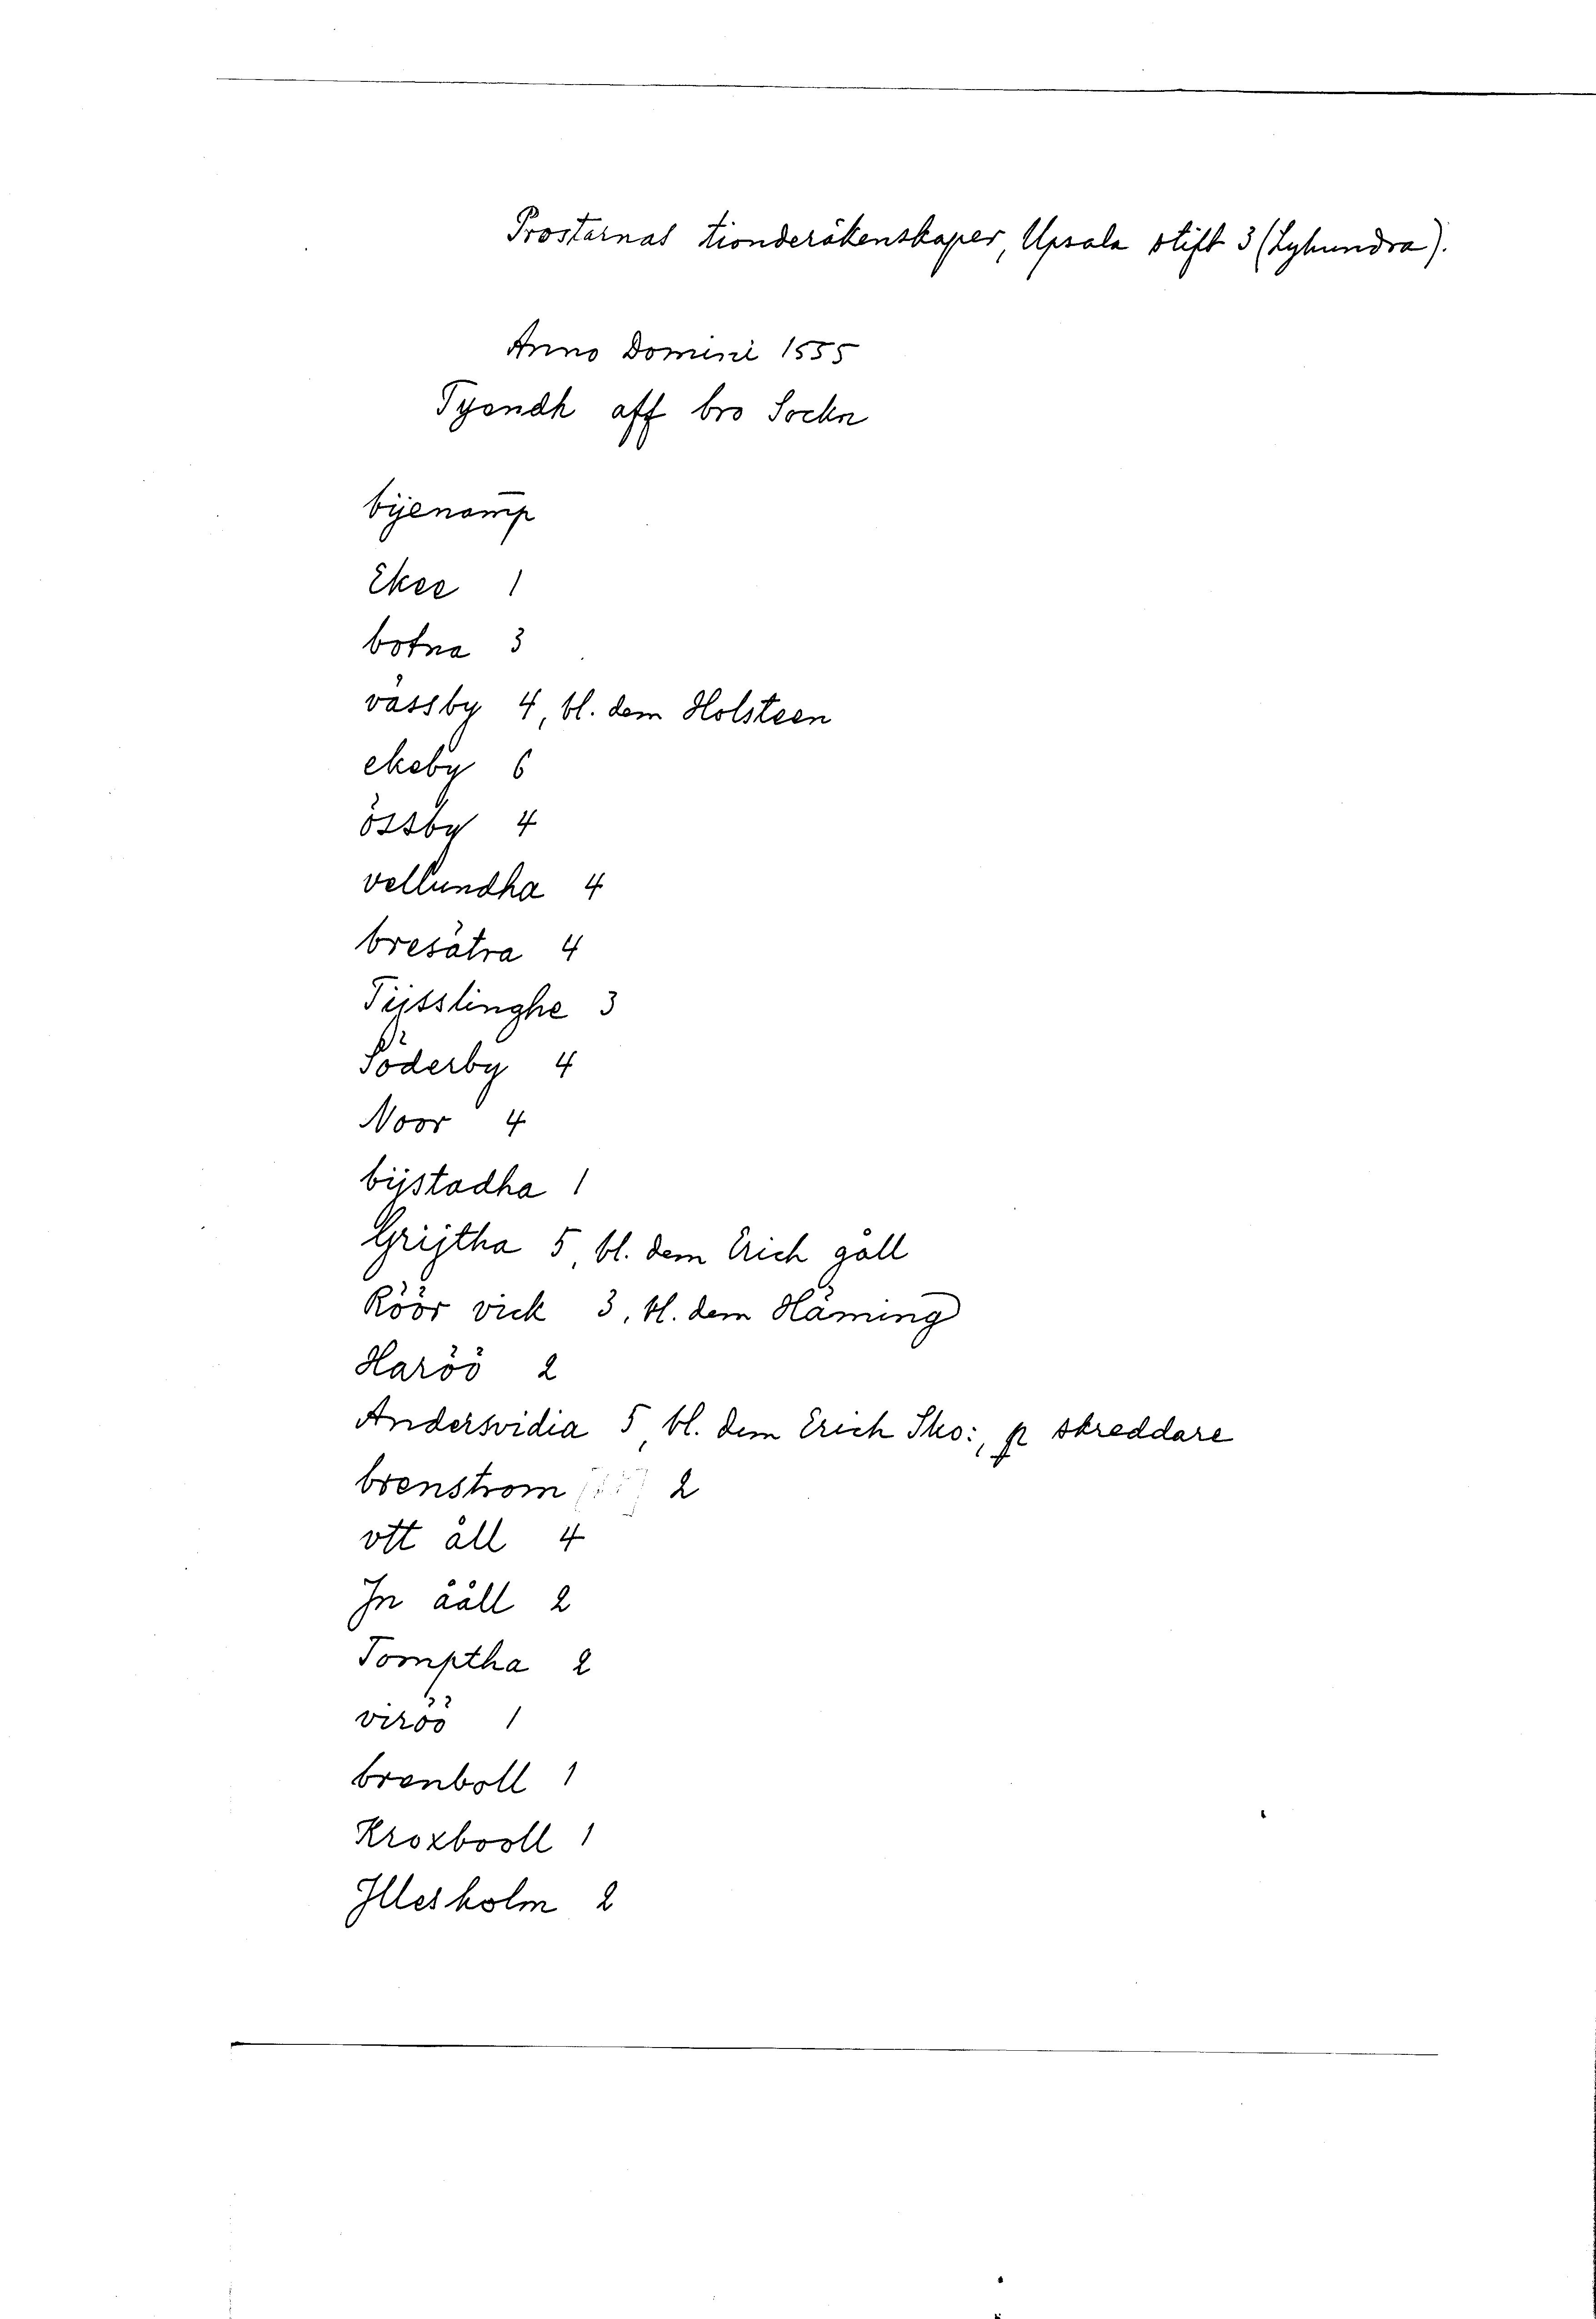 Prostarnas tionderäkenskaper, Upsala stift 3 (Lyhundra).
Anno Domini 1555
Tyendh aff bro Sockn
bijenam̄p
Ekee 1
botna 3
vässby 4, bl. dem Holsteen
ekeby 6
össby 4
vellundha 4
bresätra 4
Tijsslinghe 3
Söderby 4
Noor 4
bijstadha 1
Grijtha 5, bl. dem Erich gåll
Röör vick 3, bl. dem Häming
Haröö 2
Andersvidia 5, bl. dem Erich Sko:, p skreddare
brenstrom 2
vtt åll 4
Jn ååll 2
Tomptha 2
viröö 1
brenboll 1
Kroxbooll 1
Jllesholm 2